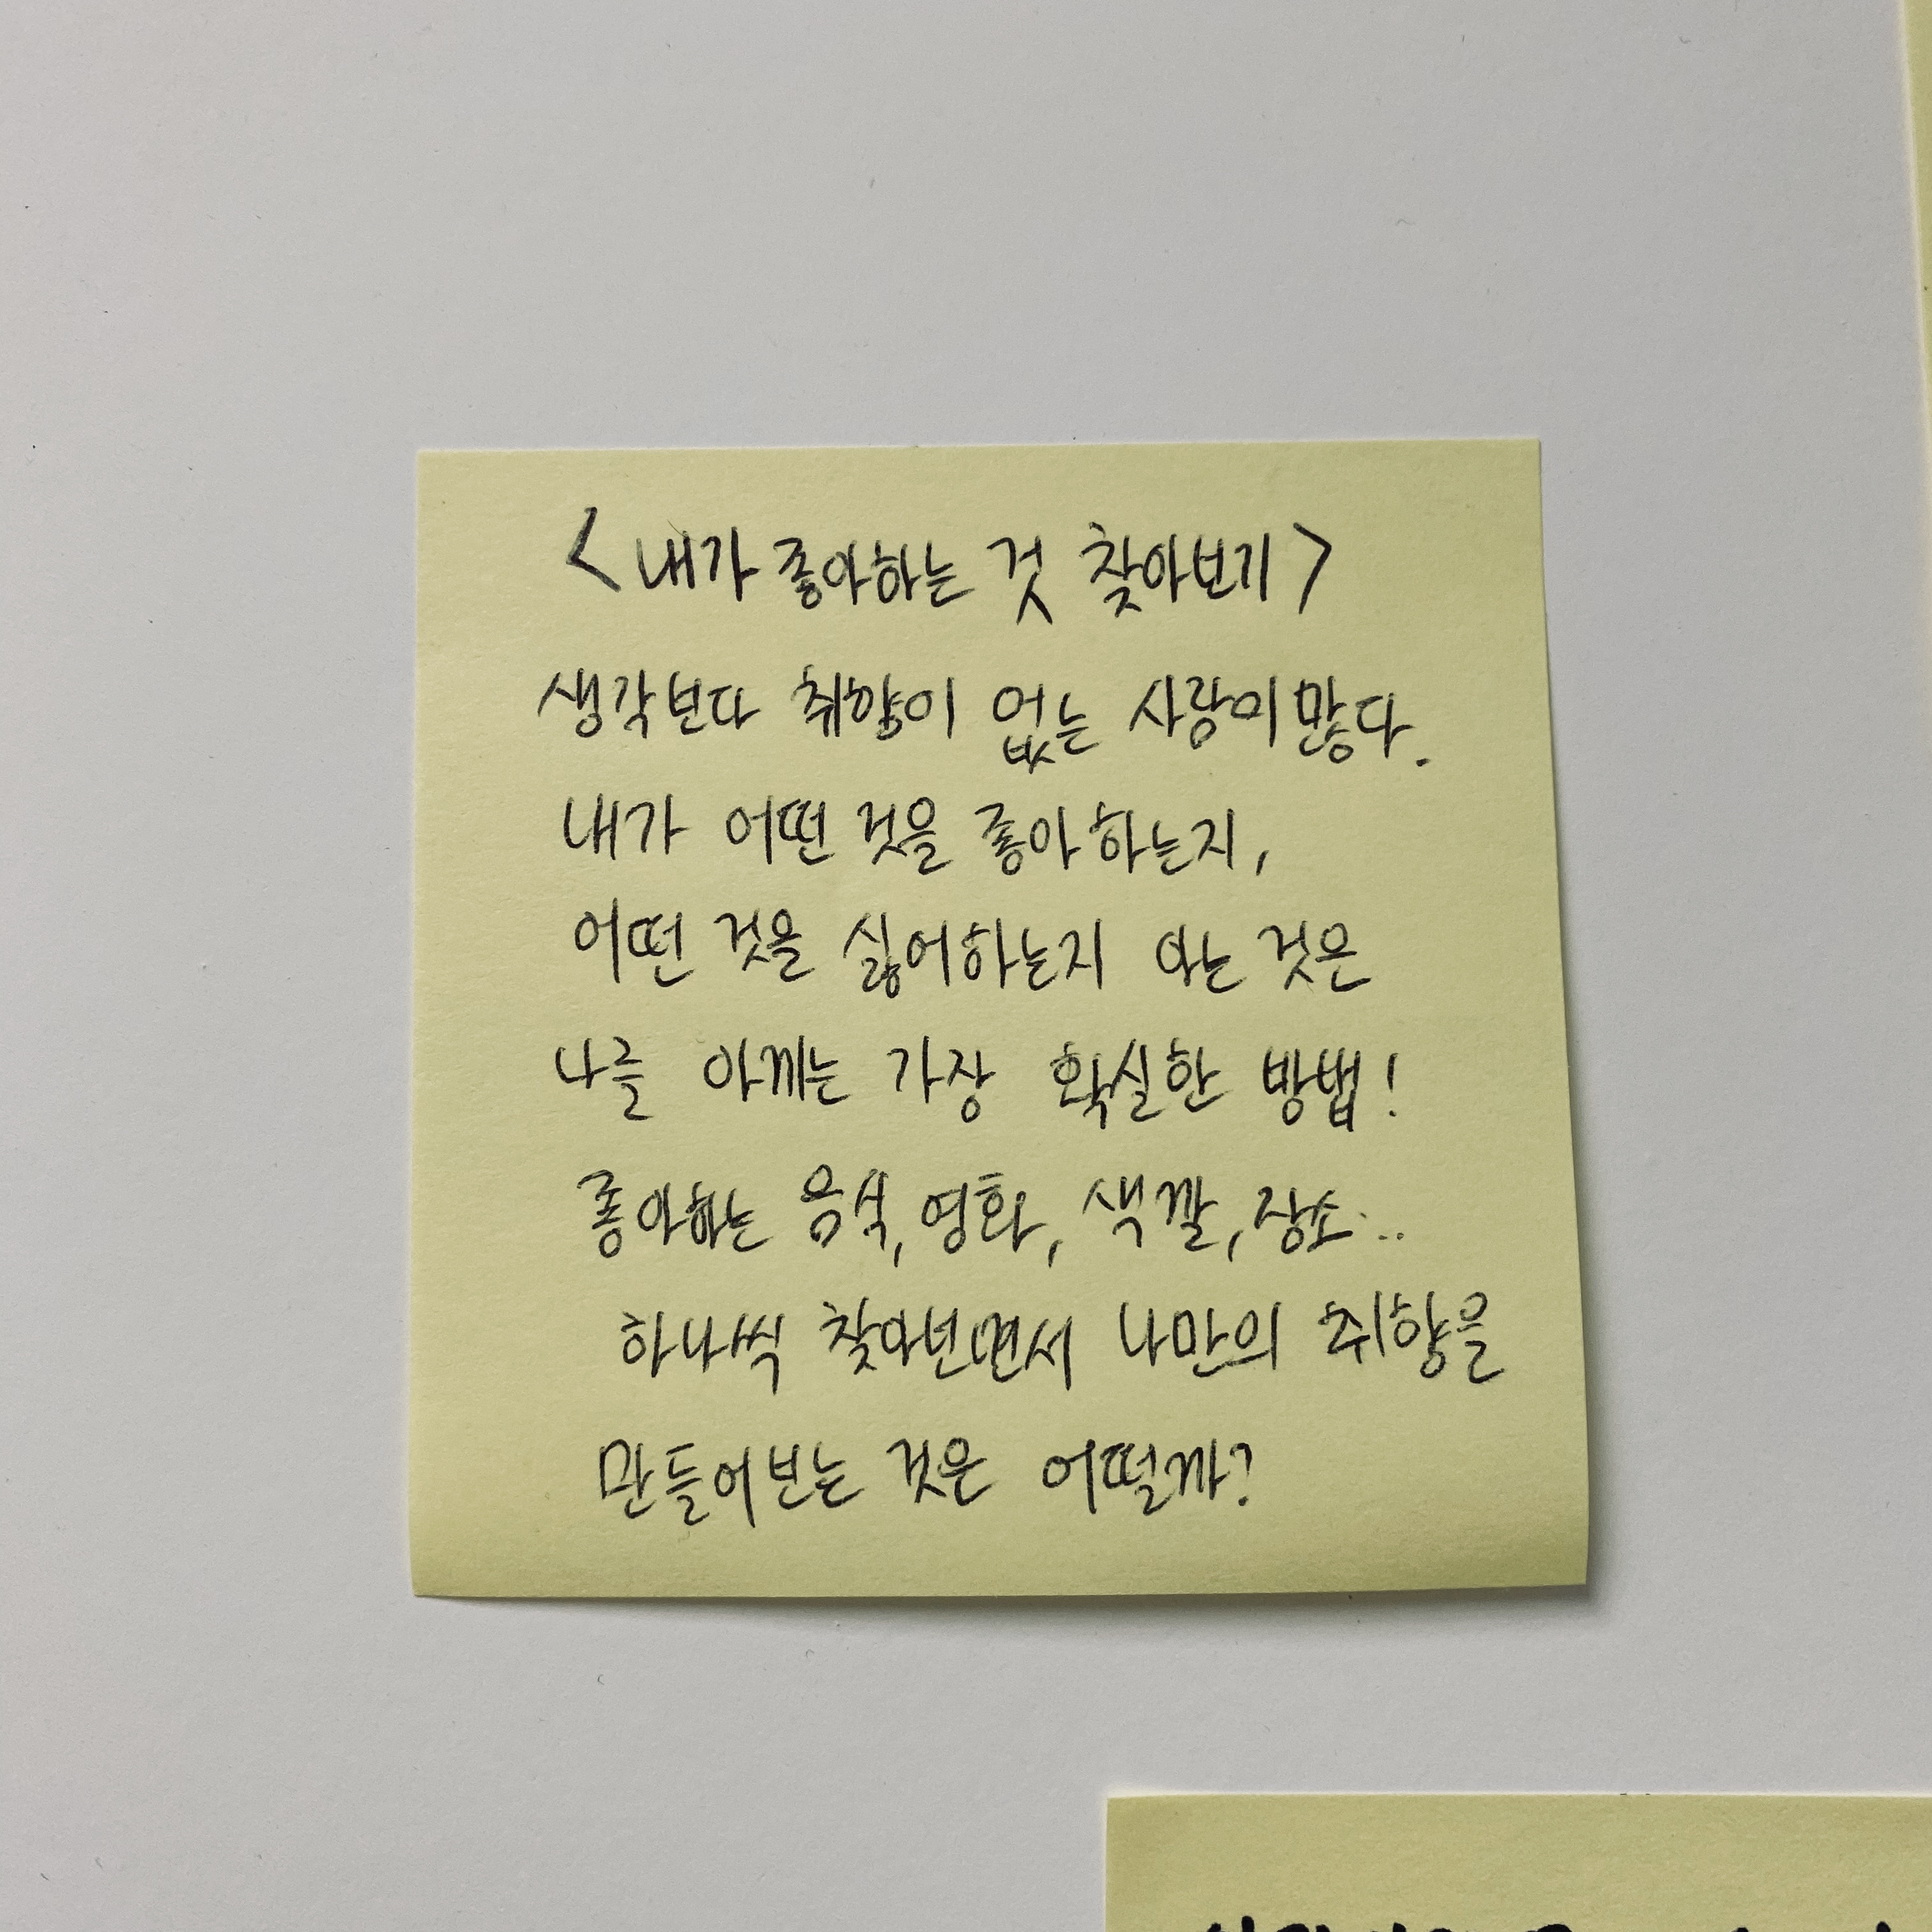 <내가 좋아하는 것 찾아보기>
생각보다 취향이 없는 사람이 많다.
내가 어떤 것을 좋아하는지,
어떤 것을 싫어하는지 아는 것은
나를 아끼는 가장 확실한 방법!
좋아하는 음식, 영화, 색깔, 장소...
하나씩 찾아보면서 나만의 취향을
만들어보는 것은 어떨까?